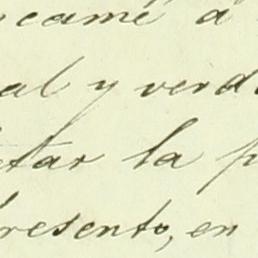 ncamé á
al y verd
tar la p
presento, en